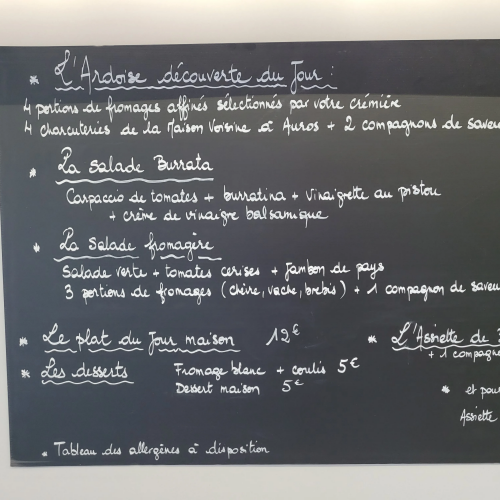 * L'Ardoise découverte du Jour :
4 portions de fromages affinés sélectionnés par votre crémière
4 charcuteries de la Maison Voisine à Auros + 2 compagnons de saveu
* La Salade Burrata
Carpaccio de tomates + burratina + vinaigrette au pistou
+ crème de vinaigre balsamique
* La Salade fromagère
Salade verte + tomates cerises + Jambon de pays
3 portions de fromages (chèvre, vache, brebis) + 1 compagnon de saveu
* Le plat du Jour maison 12€
* L'Assiette de
+ 1 compagno
* Les desserts Fromage blanc + coulis 5€
Dessert maison 5€
* et pou
Assiette
* Tableau des allergènes à disposition